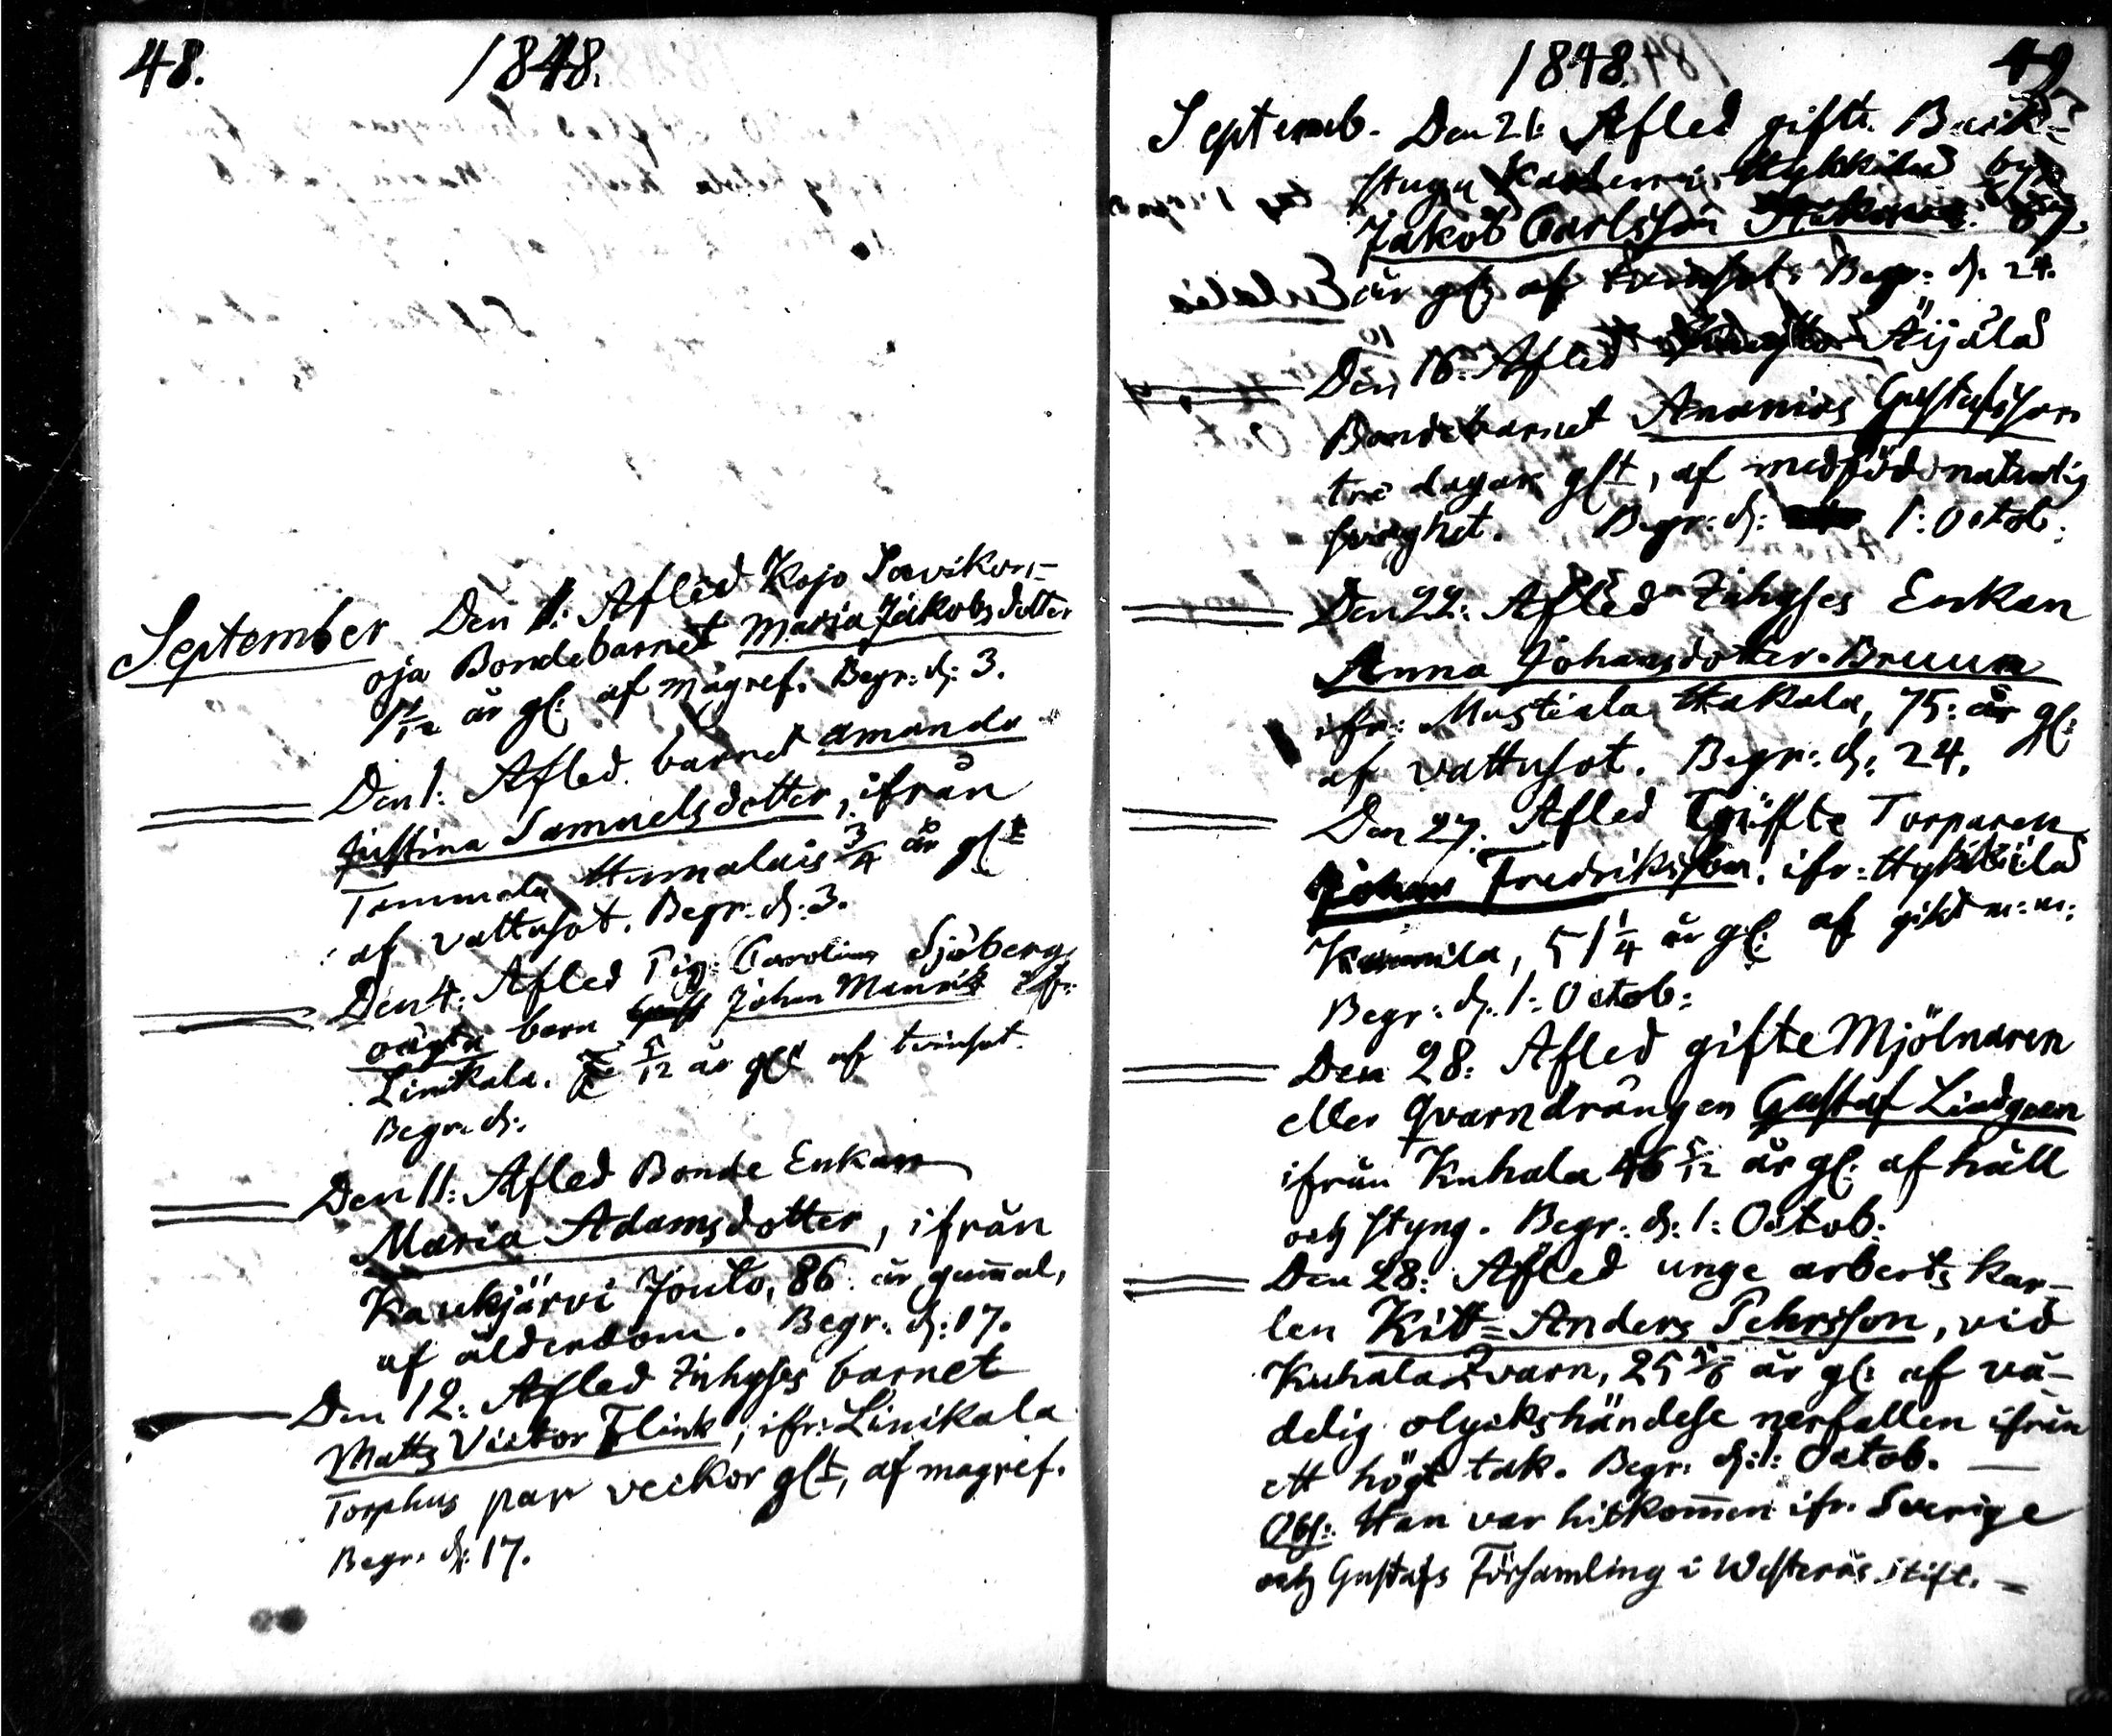 48. 1848.
September Den 1: Afled Kojo Savikon-
oja Bondebarnet Maria Jakobsdotter
år gl: af mågref. Begr: d: 3.
Den 1: Afled barnet Amanda
Justina Samuelsdotter, ifrån
Tammela Humalais 3/4 år glt
af vattusot. Begr: d: 3.
Den 4: Afled Pig: Carolina Sjöbergs
oägta barn Johan Maurits ifr:
Linikala. 5/12 år glt af tvinsot.
Begr: d:
Den 11: Afled Bonde Enkan
Maria Adamsdotter, ifrån
Kaukjärvi Jouto, 86 år gam̄al,
af ålderdom. Begr: d: 17.
Den 12: Afled Inhyses barnet
Matts Victor Flink, ifr: Linikala
Torphus par veckor glt, af magref.
Begr: d: 17.
1848. 49
Septemb. Den 21: Afled gifte Back-
stugu Karlen i by
Jakob Carlsson 67.
år gl: af tvinsot. Begr: d: 24.
Den 16: Afled Äijälä
Bondebarnet Ananias Gustafsson
tre dagar glt, af medföd naturlig
svaghet. Begr: d: 1: Octob:
Den 22: Afled Inhyses Enkan
Anna Johansdotter Bruun
ifr: Mustiala Hakala, 75: år gl:
af vattusot. Begr: d: 24.
Den 27. Afled Gifte Torparen
Johan Fredriksson, ifr: Hykkilä
51 1/4 år gl: af gikt m: m:
Begr: d: 1: Octob:
Den 28: Afled gifte Mjölnaren
eller Qvarndrängen Gustaf Lindgren
ifrån Kuhala 46 5/12 år gl: af håll
och styng. Begr: d: 1: Octob:
Den 28: Afled unge arbets kar-
len Kitt-Anders Pehrsson, vid
Kuhala Qvarn, 25 år gl: af vå-
delig olyckshändelse nerfallen ifrån
ett högt tak. Begr: d: 1: Octob.
Obs: Han var hitkom̄en ifr. Sverige
och Gustafs Församling i Westerås stift.